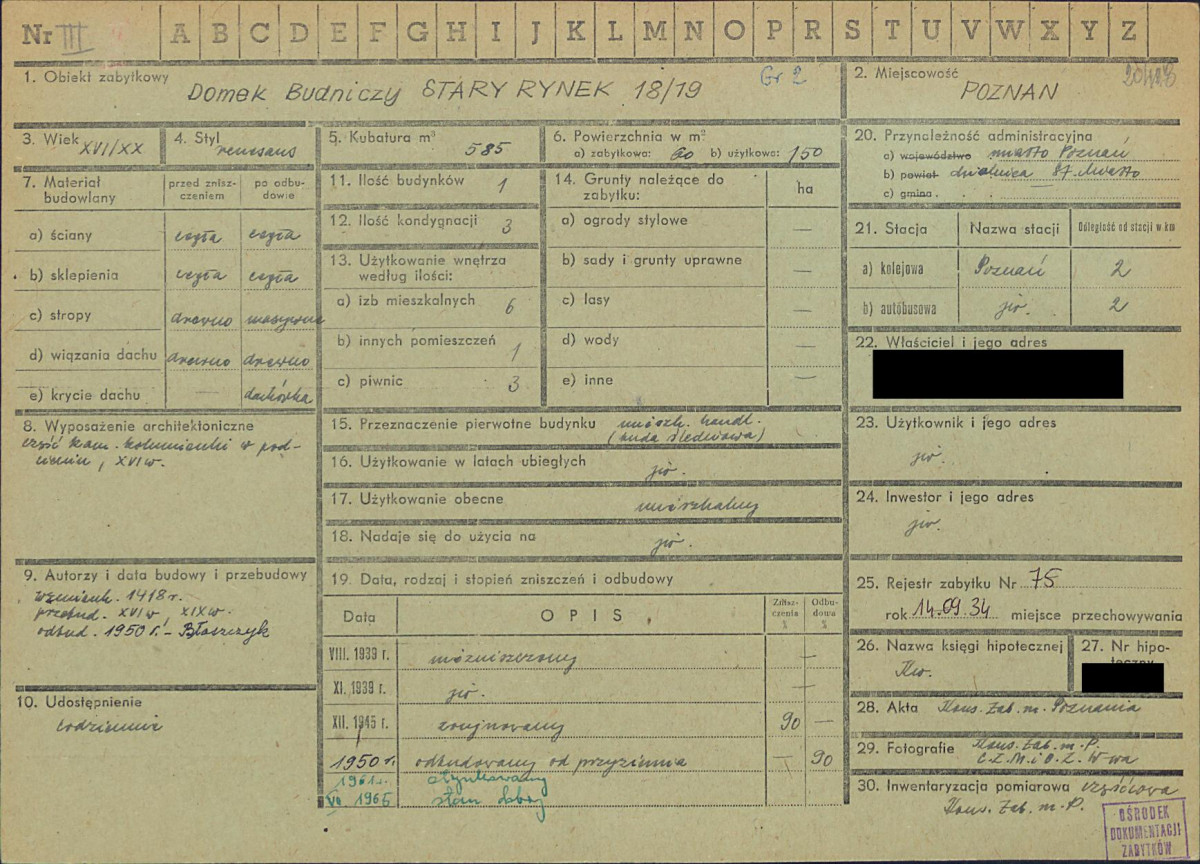 Nr III A B C D E F G H I J K L M N O P R S T U V W X Y Z
1. Obiekt zabytkowy
Domek Budniczy STARY RYNEK 18/19
Gr 2
2. Miejscowość
POZNAN
3. Wiek XVI/XX
4. Styl renesans
5. Kubatura m³ 585
6. Powierzchnia w m²
a) zabytkowa: 60 b) użytkowa: 150
7. Materiał budowlany
przed znisz-
czeniem
po odbu-
dowie
a) ściany cegła cegła
b) sklepienia cegła cegła
c) stropy drewno masywne
d) wiązania dachu drewno drewno
e) krycie dachu — dachówka
8. Wyposażenie architektoniczne
część kam. kolumienki w pod-
cieniu, XVI w.
9. Autorzy i data budowy i przebudowy
wzmiank. 1418 r.
przebud. XVI w, XIX w.
odbud. 1950 r. - Błaszczyk
10. Udostępnienie
codziennie
11. Ilość budynków 1
12. Ilość kondygnacji 3
13. Użytkowanie wnętrza
według ilości:
a) izb mieszkalnych 6
b) innych pomieszczeń 1
c) piwnic 3
14. Grunty należące do
zabytku:
ha
a) ogrody stylowe —
b) sady i grunty uprawne —
c) lasy —
d) wody —
e) inne —
15. Przeznaczenie pierwotne budynku mieszk. handl.
(buda śledziowa)
16. Użytkowanie w latach ubiegłych jw.
17. Użytkowanie obecne mieszkalny
18. Nadaje się do użycia na jw.
19. Data, rodzaj i stopień zniszczeń i odbudowy
Data
OPIS
Znisz-
czenia
%
Odbu-
dowa
%
VIII. 1939 r. niezniszczony —
XI. 1939 r. jw. —
XII. 1945 r. zrujnowany 90 —
1950 r. odbudowany od przyziemia — 90
1961 r. otynkowany
VII 1965 stan dobry
20. Przynależność administracyjna
a) województwo miasto Poznań
b) powiat dzielnica St. Miasto
c) gmina
21. Stacja
Nazwa stacji
Odległość od stacji w km
a) kolejowa Poznań 2
b) autobusowa jw. 2
22. Właściciel i jego adres
23. Użytkownik i jego adres
jw.
24. Inwestor i jego adres
jw.
25. Rejestr zabytku Nr 75
rok 14.09.34 miejsce przechowywania
26. Nazwa księgi hipotecznej
27. Nr hipo-
teczny
28. Akta Kons. Zab. m. Poznania
29. Fotografie Kons. Zab. m. P.
C.Z.M. i O.Z. W-wa
30. Inwentaryzacja pomiarowa częściowa
Kons. Zab. m. P.
OŚRODEK
DOKUMENTACJI
ZABYTKÓW